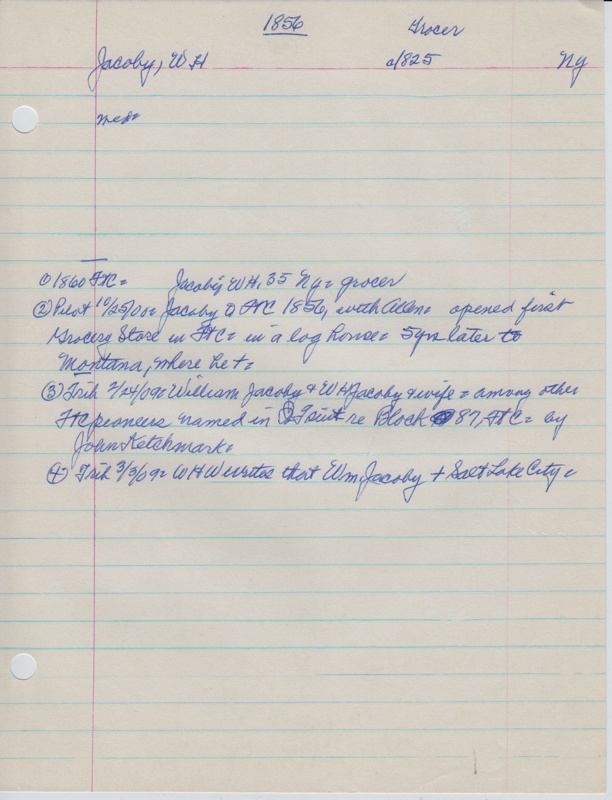 1856 Grocer
Jacoby, WH a1825 Ny
med=
① 1860 FtC= Jacoby, WH, 35 Ny= grocer
② Pilot 10/25/00= Jacoby a FtC 1856, with Allen= opened first
Grocery Store in FtC= in a log house= 5yrs later to
Montana, where he +=
③ Trib 2/24/09= William Jacoby & WH Jacoby & wife = among other
FtC pioneers named in suit re Block 87, FtC= by
John Ketchmark=
④ Trib 3/3/09= WHW writes that Wm Jacoby + Salt Lake City=